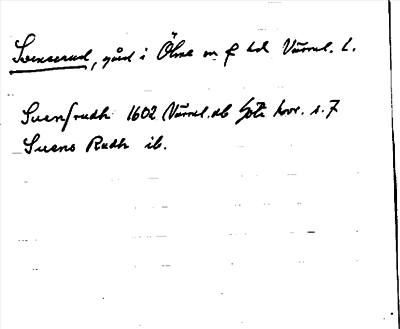 Svenserud, gård i Ölme sn o hd Värml. l.
Suensrudh 1602 Värml. db Göta hovr. s. 7
Suens Rudh ib.